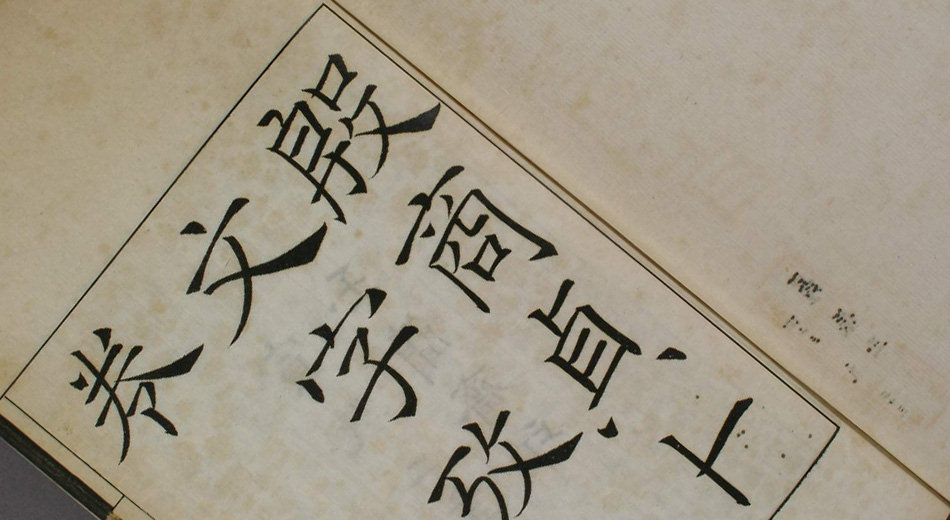 殷商貞卜
文字攷
卷